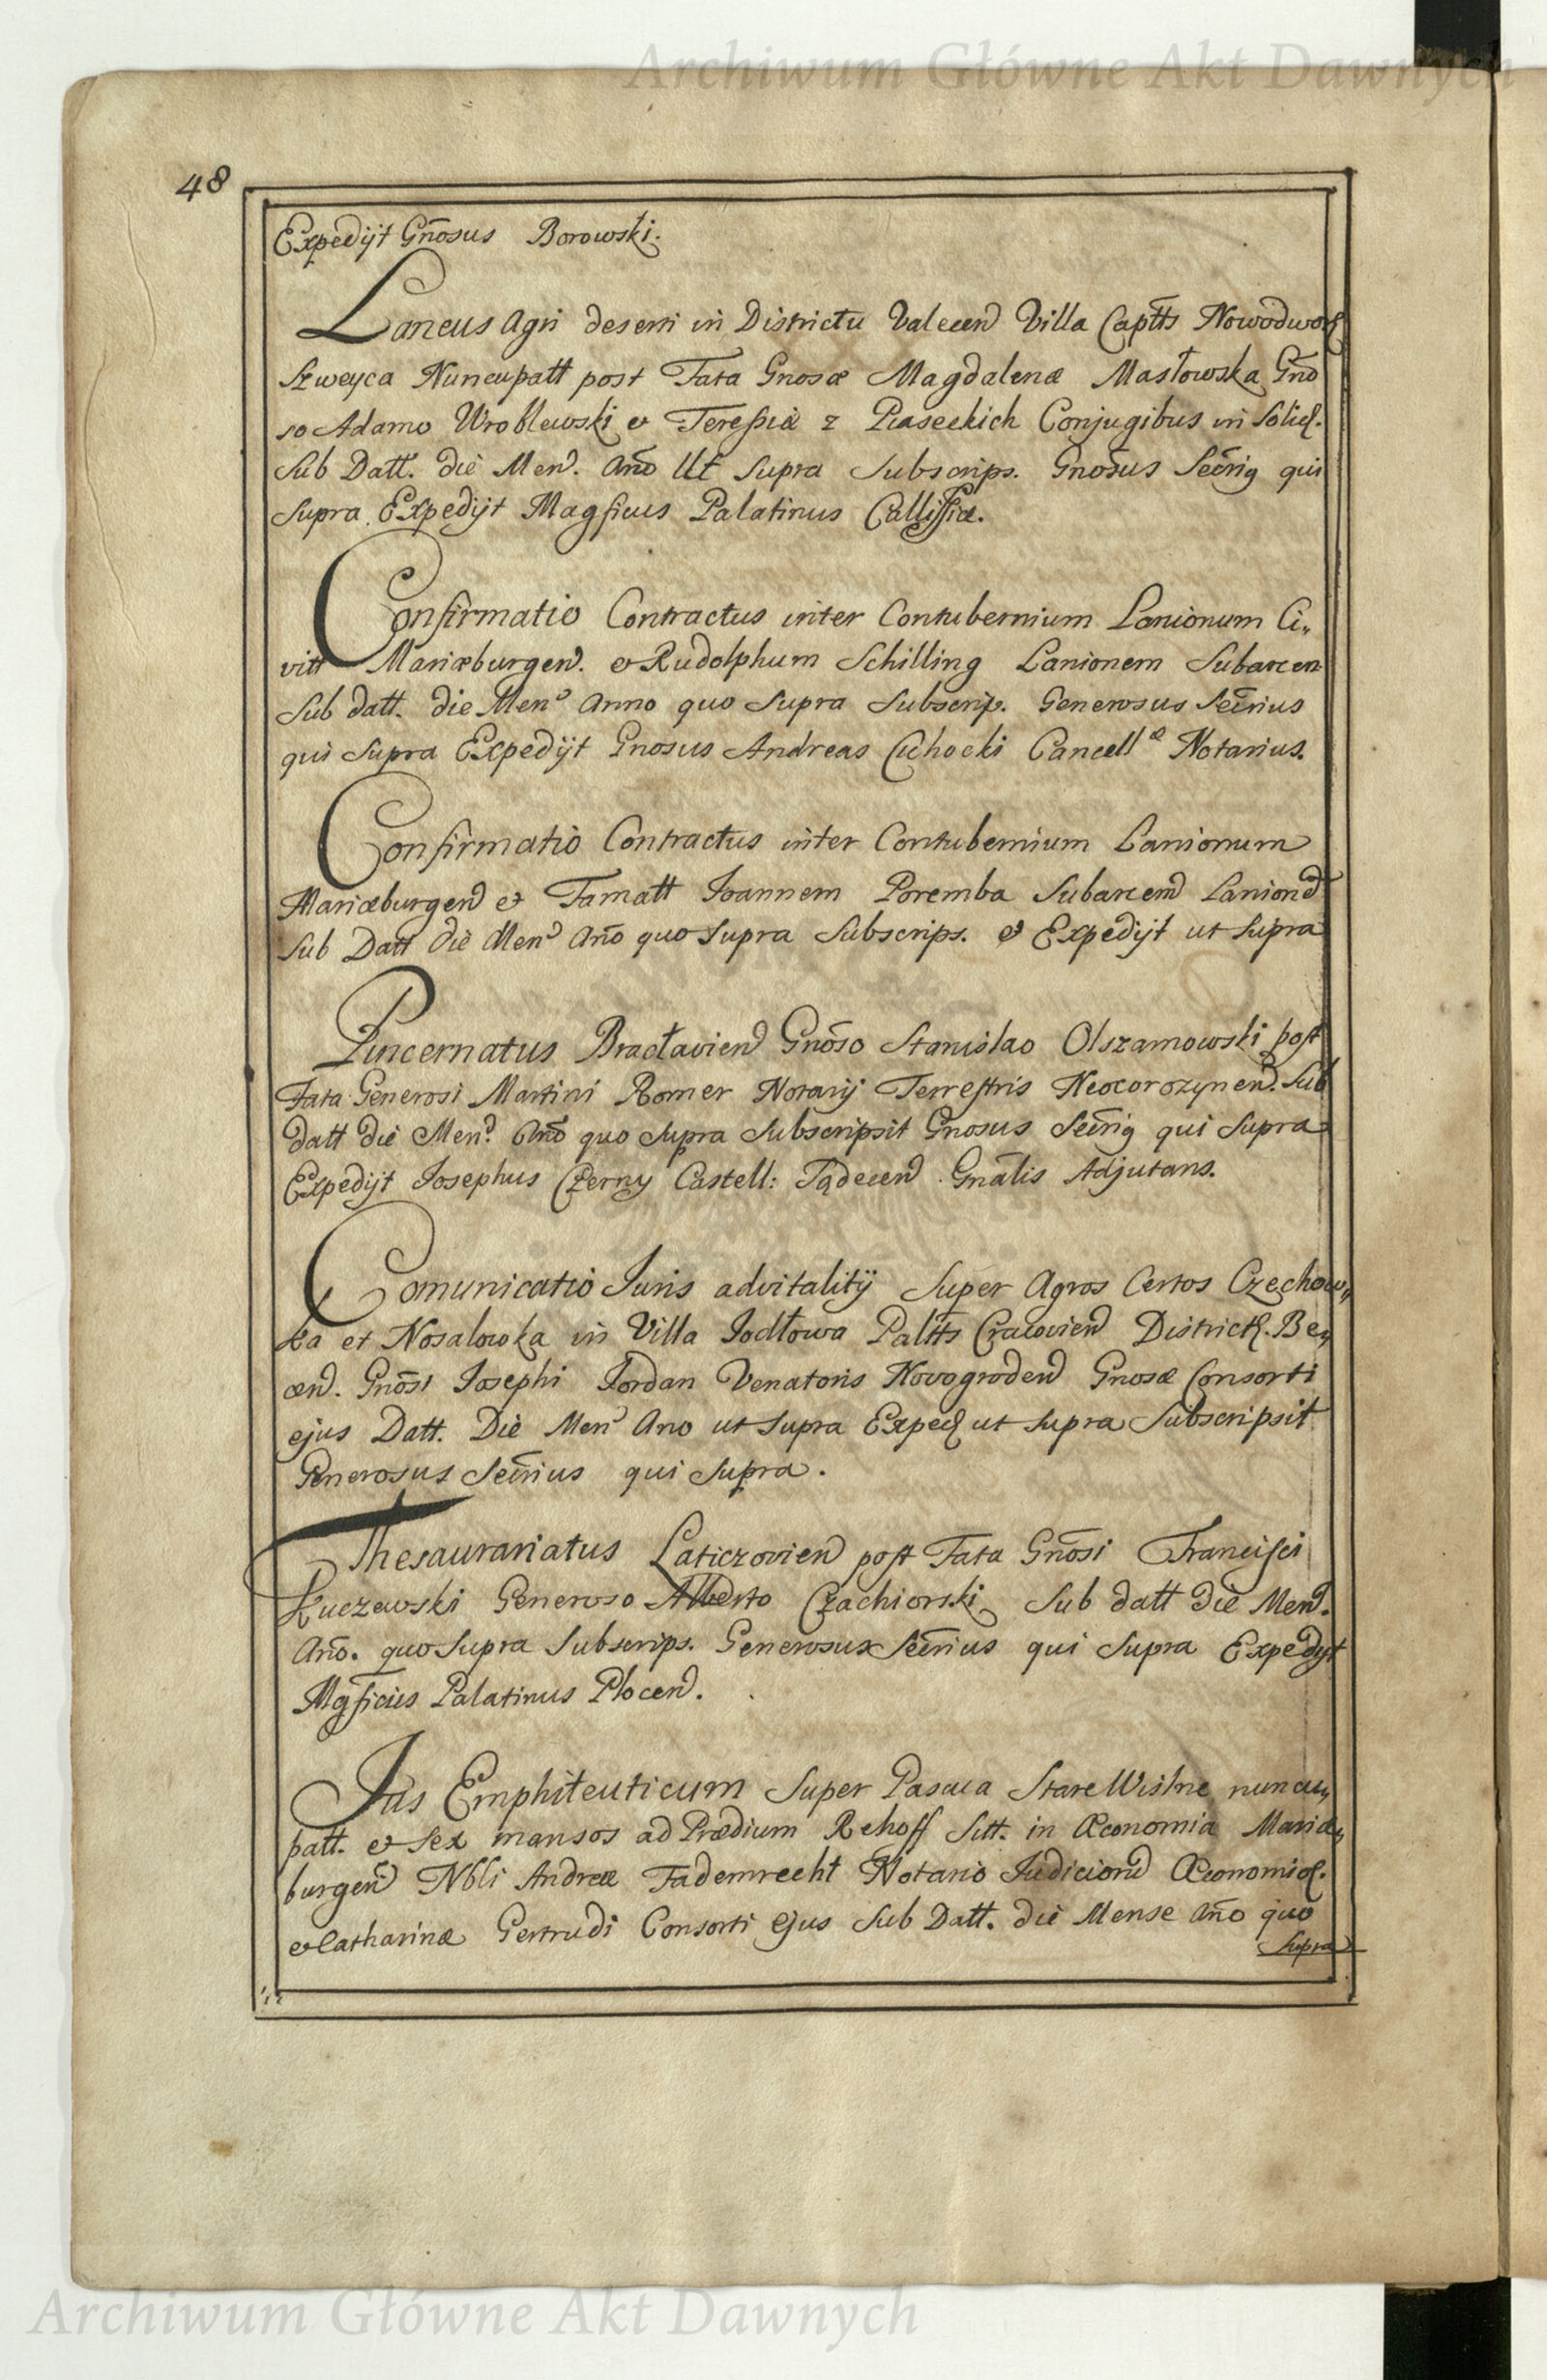 Archiwum Główne Akt Dawnych
48
Expedijt Gnosus Borowski.
Laneus Agri deserti in Districtu Valecen Villa Captts Nowodwor
Szweyca Nuncupatt post Fata Gnosæ Magdalenæ Masłowska Gno
so Adamo Wroblewski et Teressiæ z Piaseckich Conjugibus in Solid.
Sub Datt. die Men. Ano Ut Supra Subscrips. Gnosus Secrig qui
Supra Expedijt Magficus Palatinus Callissiæ.
Confirmatio Contractus inter Contubernium Lanionum Ci„
vitt Mariæburgen. et Rudolphum Schilling Lanionem Subarcen
Sub datt. die Men Anno quo Supra Subscrip. Generosus Secrius
qui Supra Expedijt Gnosus Andreas Cichocki Cancellæ Notarius.
Confirmatio Contractus inter Contubernium Lanionum
Mariæburgen et Famatt Joannem Poremba Subarcen Lanion
Sub Datt die Men Ano quo Supra Subscrips. et Expedijt ut Supra
Pincernatus Bracłavien Gnoso Stanislao Olszamowski post
Fata Generosi Martini Romer Notarij Terrestris Neocorozynen. Sub
datt die Men. Ano quo Supra Subscripsit Gnosus Secrig qui Supra
Expedijt Josephus Czerny Castell: Sądecen Gnalis Adjutans.
Comunicatio Juris advitalitij Super Agros Certos Czechow„
ka et Nosalowka in Villa Jodłowa Paltts Cracovien District. Be„
cen. Gnosi Josephi Jordan Venatoris Novogroden Gnosæ Consorti
ejus Datt. Die Men Ano ut Supra Exped ut Supra Subscripsit
Generosus Secrius qui Supra.
Thesaurariatus Laticzovien post Fata Gnosi Francisci
Kuczewski Generoso Alberto Czachiorski Sub datt die Men.
Ano. quo Supra Subscrips. Generosus Secrius qui Supra Expedijt
Mgficus Palatinus Plocen.
Jus Emphiteuticum Super Pascua Stare Wislne nuncu„
patt. et Sex mansos ad Prædium Rehoff Sitt. in Œconomia Mariæ„
burgen Nbli Andreæ Fademrecht Notario Judicioru Œconomic.
et Catharinæ Gertrudi Consorti Ejus Sub Datt. die Mense Ano quo
Supra
Archiwum Główne Akt Dawnych